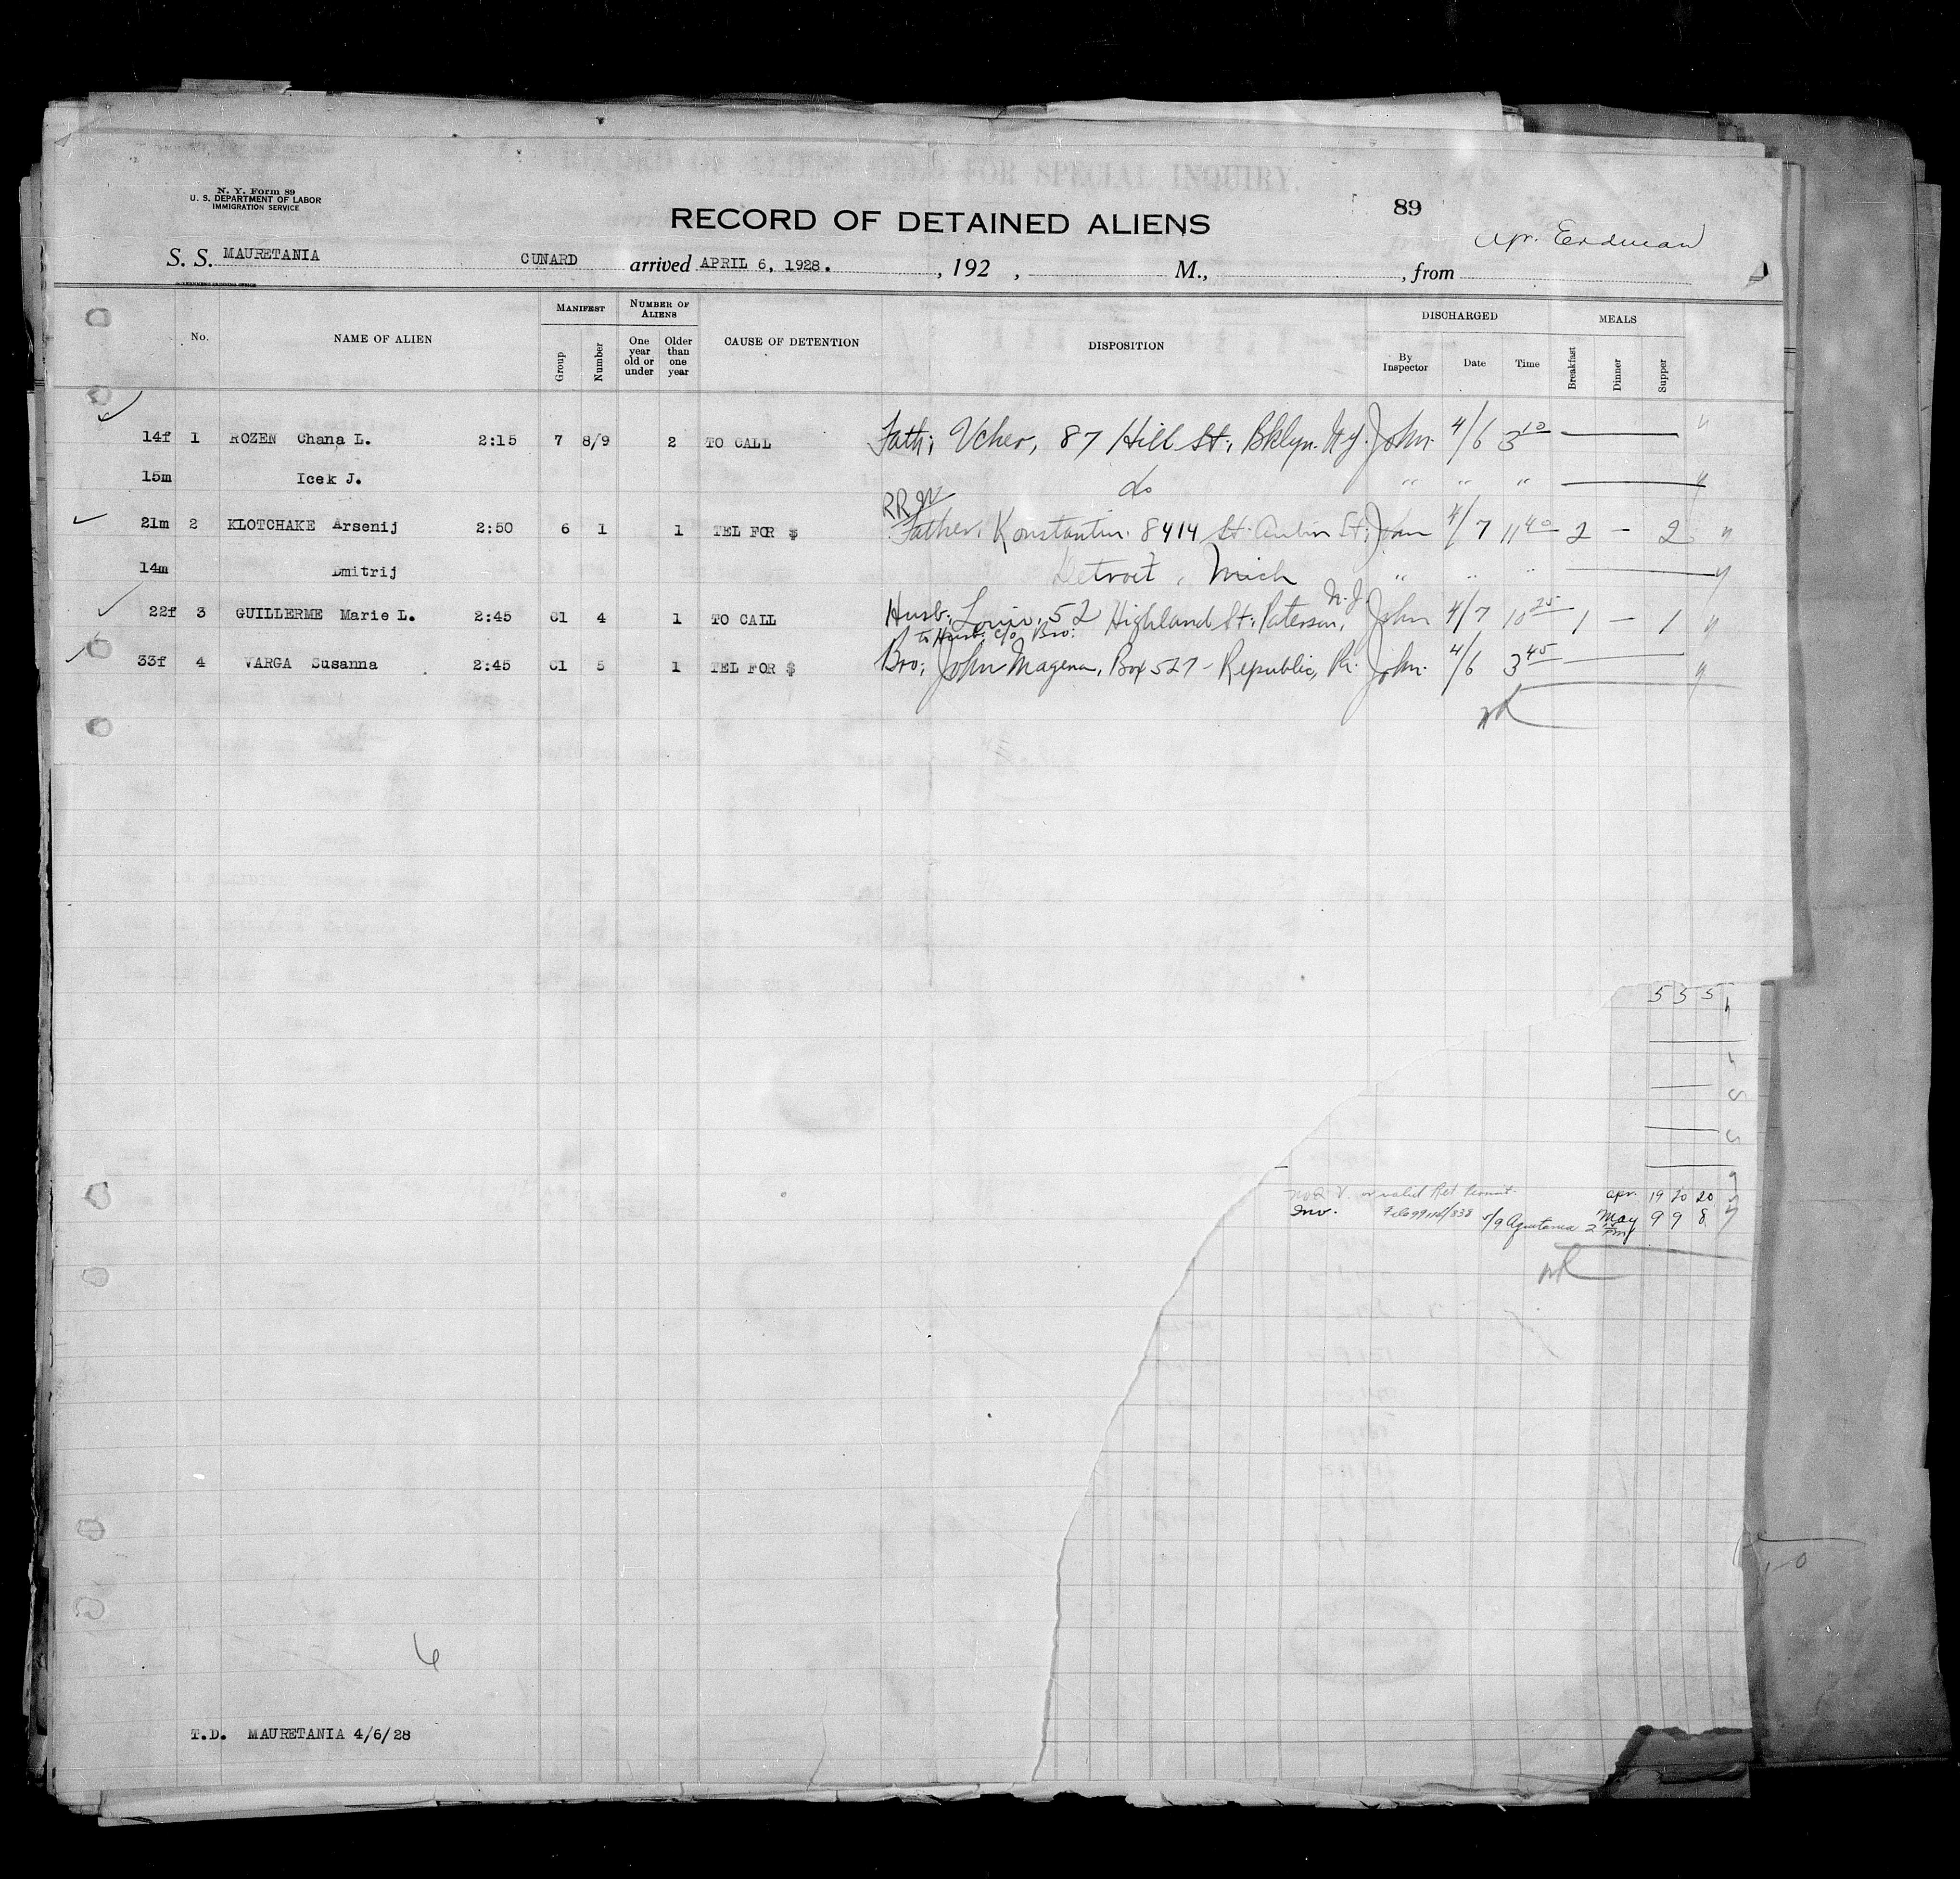 N. Y. Form 89
U. S. DEPARTMENT OF LABOR
IMMIGRATION SERVICE
RECORD OF DETAINED ALIENS
89
Erdman
S. S. MAURETANIA CUNARD arrived APRIL 6, 1928. , 192 , M., , from
GOVERNMENT PRINTING OFFICE
No. NAME OF ALIEN MANIFEST Group Number NUMBER OF ALIENS One year old or under Older than one year CAUSE OF DETENTION DISPOSITION DISCHARGED By Inspector Date Time MEALS Breakfast Dinner Supper
14f 1 ROZEN Chana L. 2:15 7 8/9 2 TO CALL Fath; Ucher, 87 Hill St, Bklyn. N.Y. John. 4/6 3 10 —
15m Icek J. do " " " —
RR
21m 2 KLOTCHAKE Arsenij 2:50 6 1 1 TEL FOR $ Father, Konstantin. 8414 St. Aubin St. John 4/7 11 40 2 – 2
14m Dmitrij Detroit, Mich " " " —
22f 3 GUILLERME Marie L. 2:45 C1 4 1 TO CALL Husb: Louis, 52 Highland St. Paterson, N.J. John 4/7 10 25 1 – 1
to Husb. c/o Bro:
33f 4 VARGA Susanna 2:45 C1 5 1 TEL FOR $ Bro; John Magena, Box 527 - Republic, Pa. John. 4/6 3 45 —
5 3 5
or valid Ret Permit. Apr. 19 20 20
5/9 Aquitania May 9 9 8
6
T.D. MAURETANIA 4/6/28